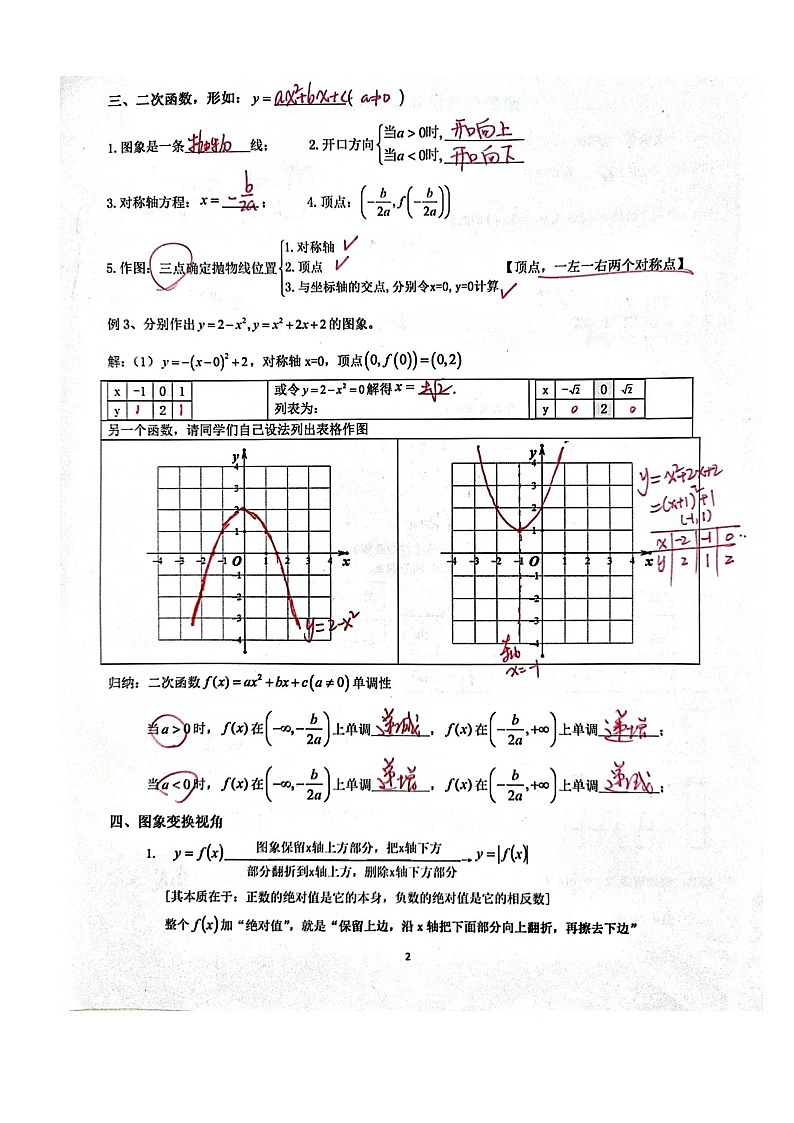 三、二次函数，形如：y=ax²+bx+c( a≠0 )
1.图象是一条抛物线；　2.开口方向{当a>0时,开口向上
当a<0时,开口向下
3.对称轴方程：x=-b/2a；　4.顶点：(-b/2a, f(-b/2a))
5.作图：三点确定抛物线位置{1.对称轴 ✓
2.顶点 ✓
3.与坐标轴的交点,分别令x=0,y=0计算 ✓
【顶点，一左一右两个对称点】
例 3、分别作出 y=2-x², y=x²+2x+2 的图象。
解：（1）y=-(x-0)²+2，对称轴 x=0，顶点(0, f(0))=(0,2)
x -1 0 1
y 1 2 1
或令 y=2-x²=0 解得 x=±√2．
列表为：
x -√2 0 √2
y 0 2 0
另一个函数，请同学们自己设法列出表格作图
y 4 3 2 1 -1 -2 -3 -4
-4 -3 -2 -1 O 1 2 3 4 x
y=2-x²
y 4 3 2 1 -1 -2 -3 -4
-4 -3 -2 -1 O 1 2 3 4 x
x=-1
y=x²+2x+2
=(x+1)²+1
(-1,1)
x -2 -1 0 ..
y 2 1 2
归纳：二次函数 f(x)=ax²+bx+c(a≠0) 单调性
当 a>0 时，f(x) 在(-∞,-b/2a)上单调递减，f(x) 在(-b/2a,+∞)上单调递增；
当 a<0 时，f(x) 在(-∞,-b/2a)上单调递增，f(x) 在(-b/2a,+∞)上单调递减；
四、图象变换视角
1. y=f(x) 图象保留x轴上方部分，把x轴下方 → y=|f(x)|
部分翻折到x轴上方，删除x轴下方部分
[其本质在于：正数的绝对值是它的本身，负数的绝对值是它的相反数]
整个 f(x) 加“绝对值”，就是“保留上边，沿 x 轴把下面部分向上翻折，再擦去下边”
2